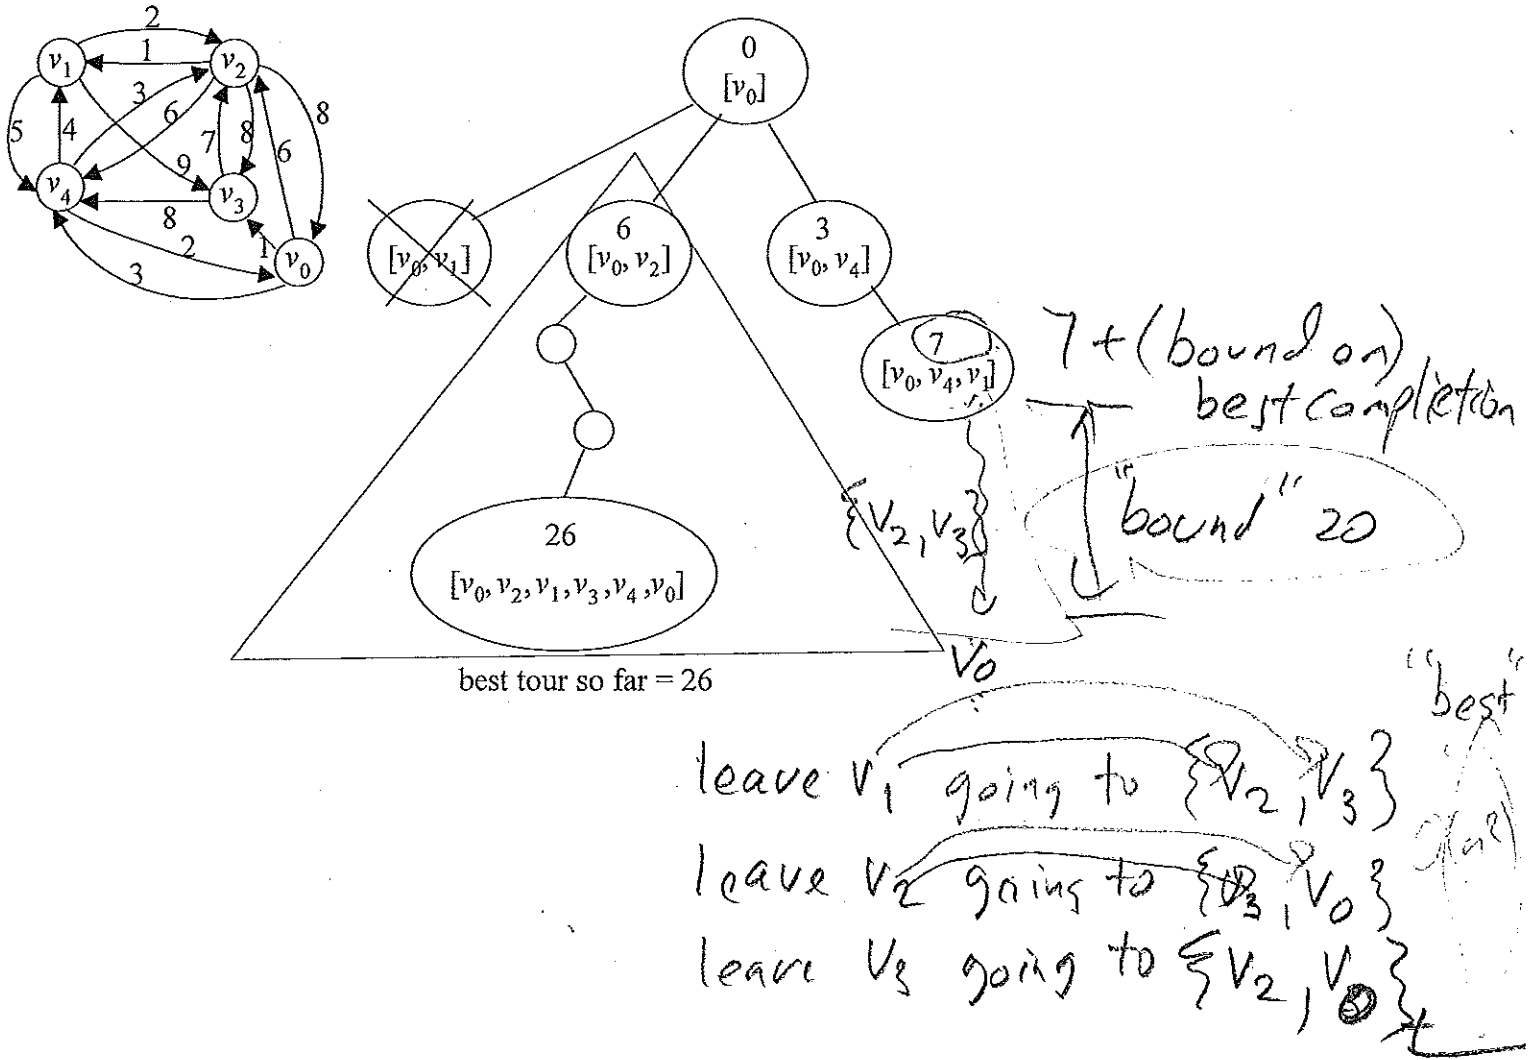 2
1
v1
v2
3
6
8
5
4
7
8
6
9
v4
v3
8
2
1
v0
3
0
[v0]
[v0, v1]
6
[v0, v2]
3
[v0, v4]
7
[v0, v4, v1]
26
[v0, v2, v1, v3, v4, v0]
best tour so far = 26
7 + (bound on)
best completion
{v2, v3}
"bound" 20
v0
"best"
leave v1 going to {v2, v3}
leave v2 going to {v3, v0}
leave v3 going to {v2, v0}